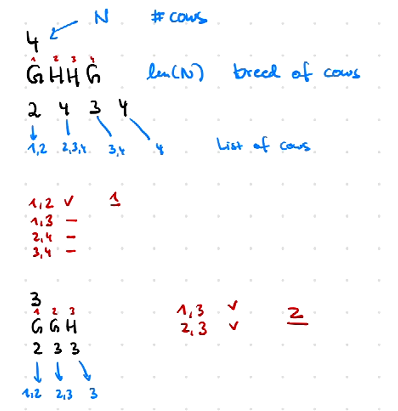 N # cows
4
1 2 3 4
G H H G len(N) breed of cows
2 4 3 4
1,2 2,3,4 3,4 4 List of cows
1,2 ✓ 1
1,3 –
2,4 –
3,4 –
3
1 2 3
G G H
2 3 3
1,2 2,3 3
1,3 ✓
2,3 ✓ 2